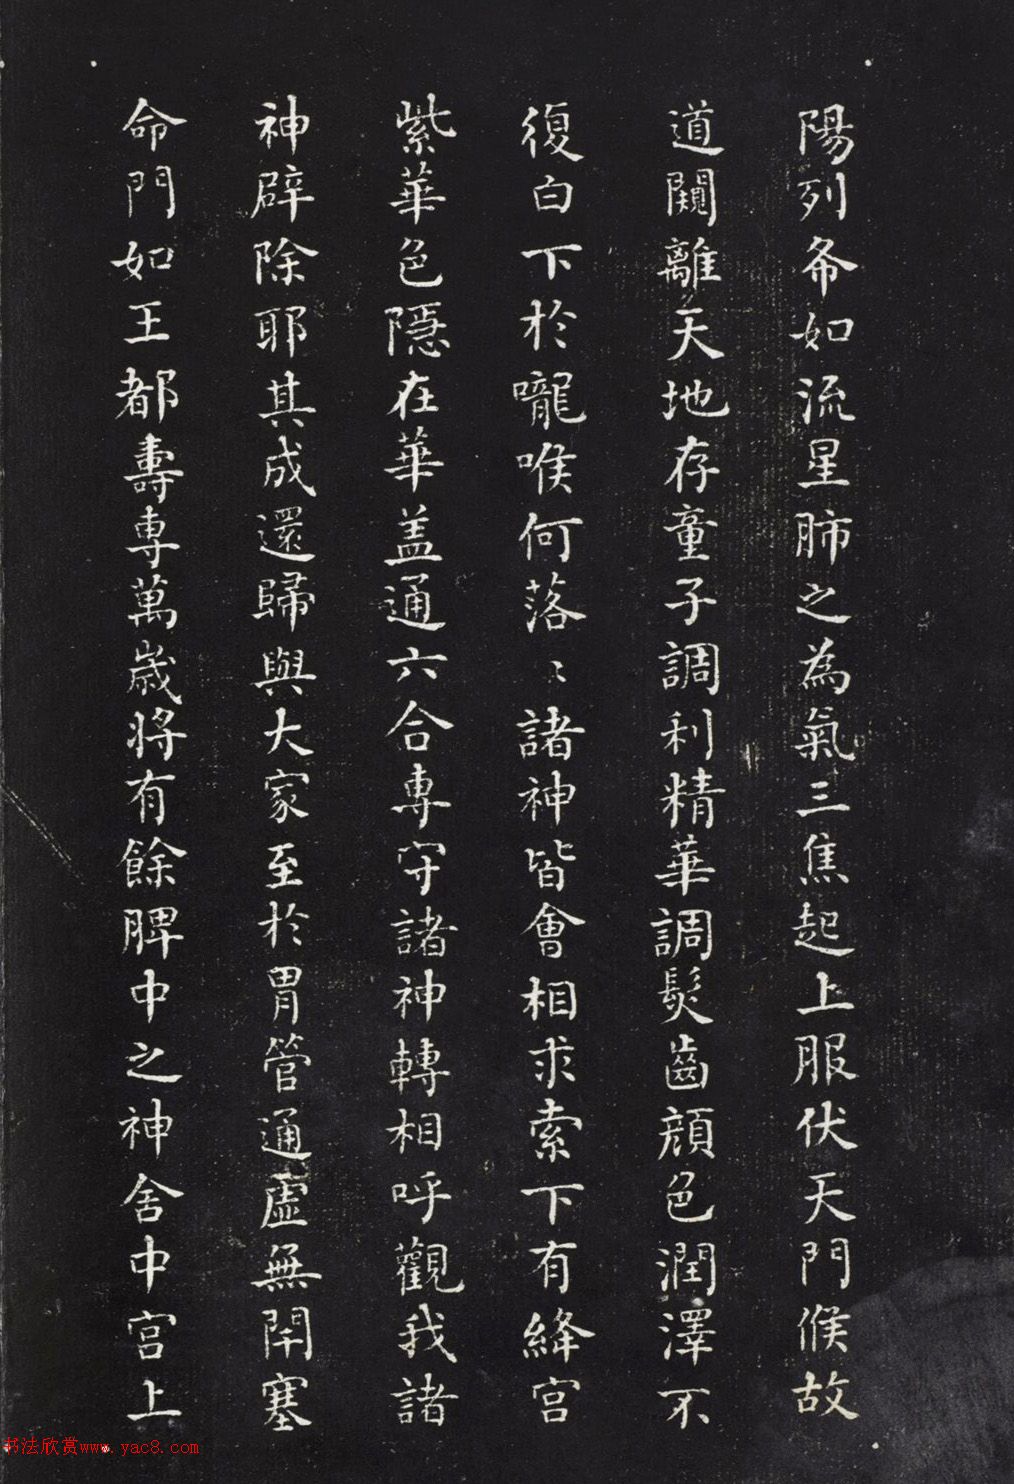 陽列布如流星肺之為氣三焦起上服伏天門候故
道闚離天地存童子調利精華調髮齒顏色潤澤不
復白下於嚨喉何落〻諸神皆會相求索下有絳宮
紫華色隱在華盖通六合專守諸神轉相呼觀我諸
神辟除耶其成還歸與大家至於胃管通虛無閇塞
命門如王都壽專萬歲將有餘脾中之神舍中宮上
书法欣赏www.yac8.com